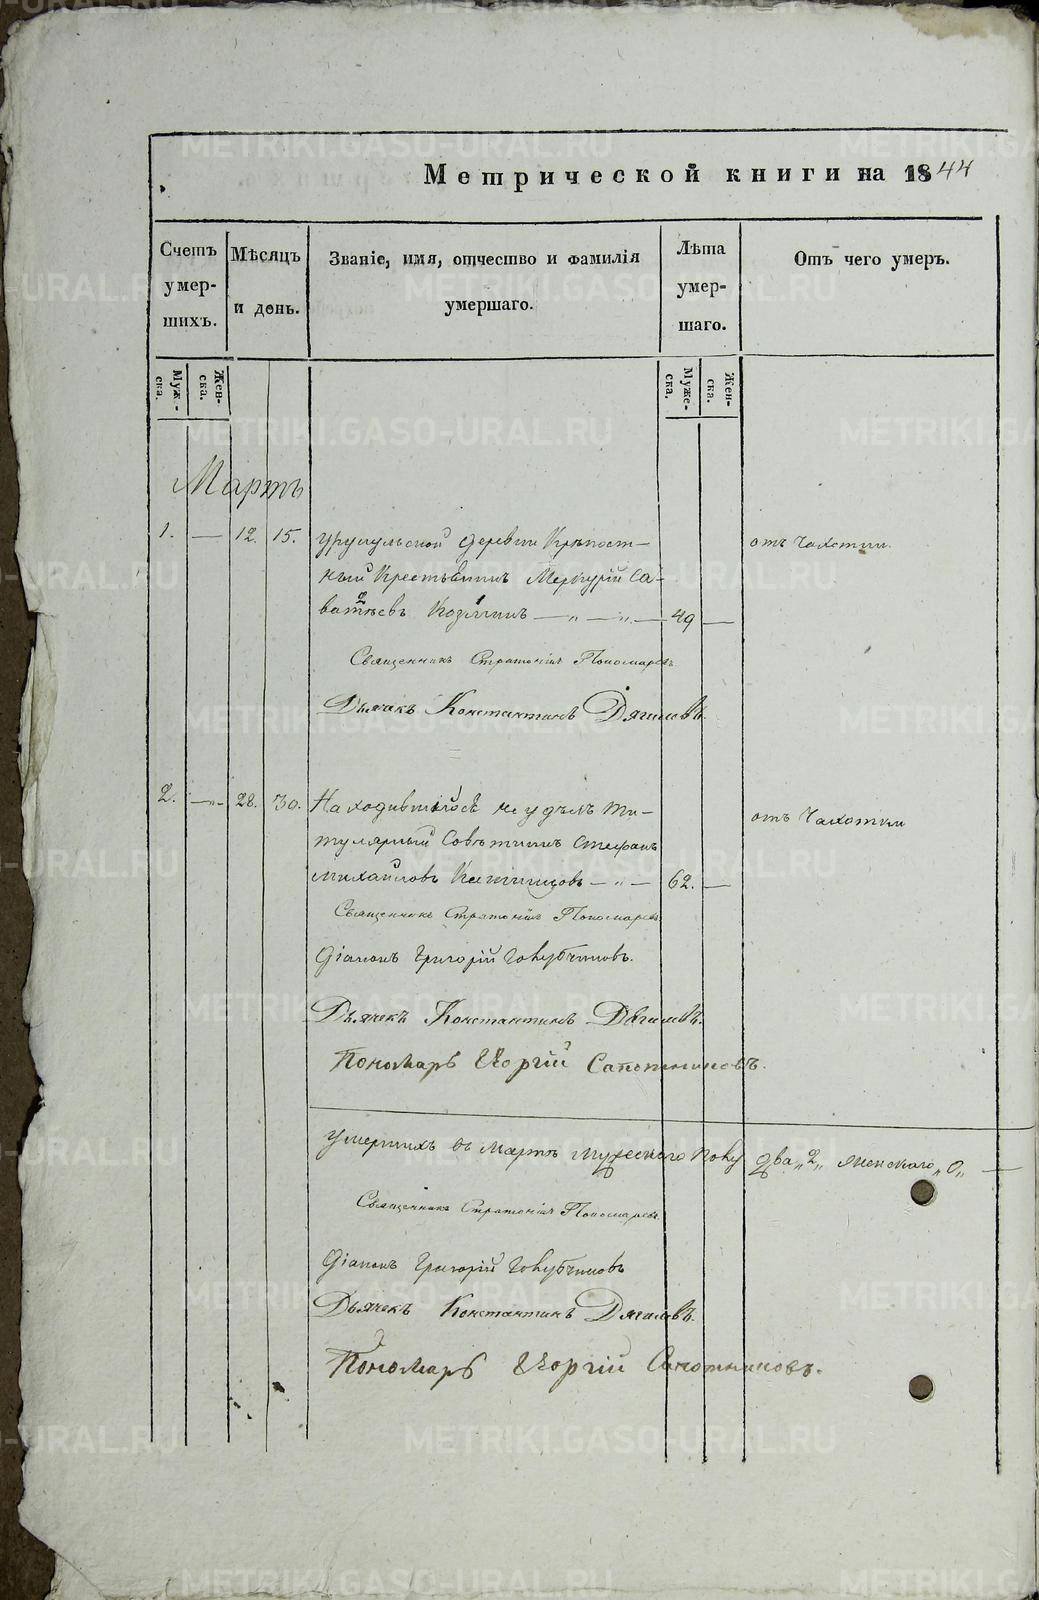 Метрической книги на 1844
Счетъ умер-шихъ.
Мѣсяцъ и день.
Званіе, имя, отчество и фамилія умершаго.
Лѣта умер-шаго.
Отъ чего умеръ.
Муже-ска.
Жен-ска.
Муже-ска.
Жен-ска.
Мартъ
1. — 12. 15. Урукульской деревни Крѣпост-
ный Крестьянинъ Меркурій Са-
ватѣевъ Козминъ — „ — „ — 49 —
отъ Чахотки.
Священникъ Стратоникъ Пономаревъ
Дьячекъ Константинъ Дягилевъ.
2. —„— 28. 30. Находившійся не у дѣлъ Ти-
тулярный Совѣтникъ Стефанъ
Михайловъ — „ — 62. —
отъ Чахотки
Священникъ Стратоникъ Пономаревъ
Діаконъ Григорій Голубчиковъ.
Дьячекъ Константинъ Дягилевъ.
Пономарь Георгій Сапожниковъ.
Умершихъ въ Мартѣ мужескаго полу два „2„ женскаго „0„ —
Священникъ Стратоникъ Пономаревъ
Діаконъ Григорій Голубчиковъ
Дьячекъ Константинъ Дягилевъ.
Пономарь Георгій Сапожниковъ.
METRIKI.GASO-URAL.RU